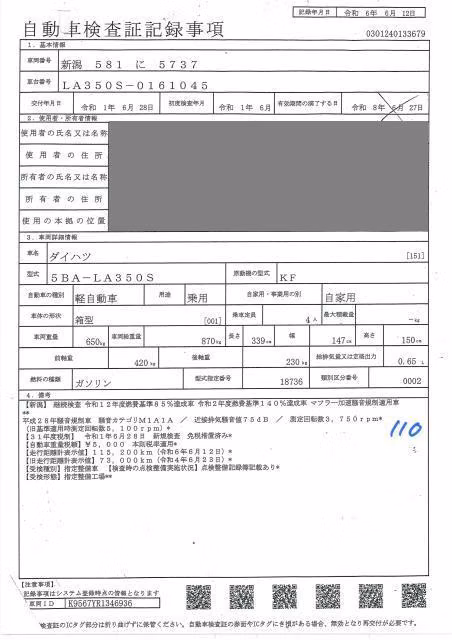 記録年月日 令和 6年 6月 12日
自動車検査証記録事項
0301240133679
1. 基本情報
車両番号 新潟 581 に 5737
車台番号 LA350S-0161045
交付年月日 令和 1年 6月 28日 初度検査年月 令和 1年 6月 有効期間の満了する日 令和 8年 6月 27日
2. 使用者・所有者情報
使用者の氏名又は名称
使用者の住所
所有者の氏名又は名称
所有者の住所
使用の本拠の位置
3. 車両詳細情報
車名 ダイハツ [151]
型式 5BA-LA350S 原動機の型式 KF
自動車の種別 軽自動車 用途 乗用 自家用・事業用の別 自家用
車体の形状 箱型 [001] 乗車定員 4人 最大積載量 -kg
車両重量 650kg 車両総重量 870kg 長さ 339cm 幅 147cm 高さ 150cm
前軸重 420kg 後軸重 230kg 総排気量又は定格出力 0.65L
燃料の種類 ガソリン 型式指定番号 18736 類別区分番号 0002
4. 備考
【新潟】 継続検査 令和12年度燃費基準85%達成車 令和2年度燃費基準140%達成車 マフラー加速騒音規制適用車
**
平成28年騒音規制車 騒音カテゴリM1A1A / 近接排気騒音値75dB / 測定回転数3,750rpm*
(旧基準適用時測定回転数5,100rpm)*
【31年度税制】 令和1年6月28日 新規検査 免税措置済み*
【自動車重量税額】¥5,000 本則税率適用*
【走行距離計表示値】115,200km(令和6年6月12日)*
【旧走行距離計表示値】73,000km(令和4年6月23日)*
【受検種別】指定整備車 【検査時の点検整備実施状況】点検整備記録簿記載あり*
【受検形態】指定整備工場**
110
【注意事項】
記録事項はシステム登録時点の情報となります
車両ID K9567YR1346936
検査証のICタグ部分は折り曲げずに保管ください。自動車検査証の券面やICタグにき損がある場合、無効となり再交付が必要です。